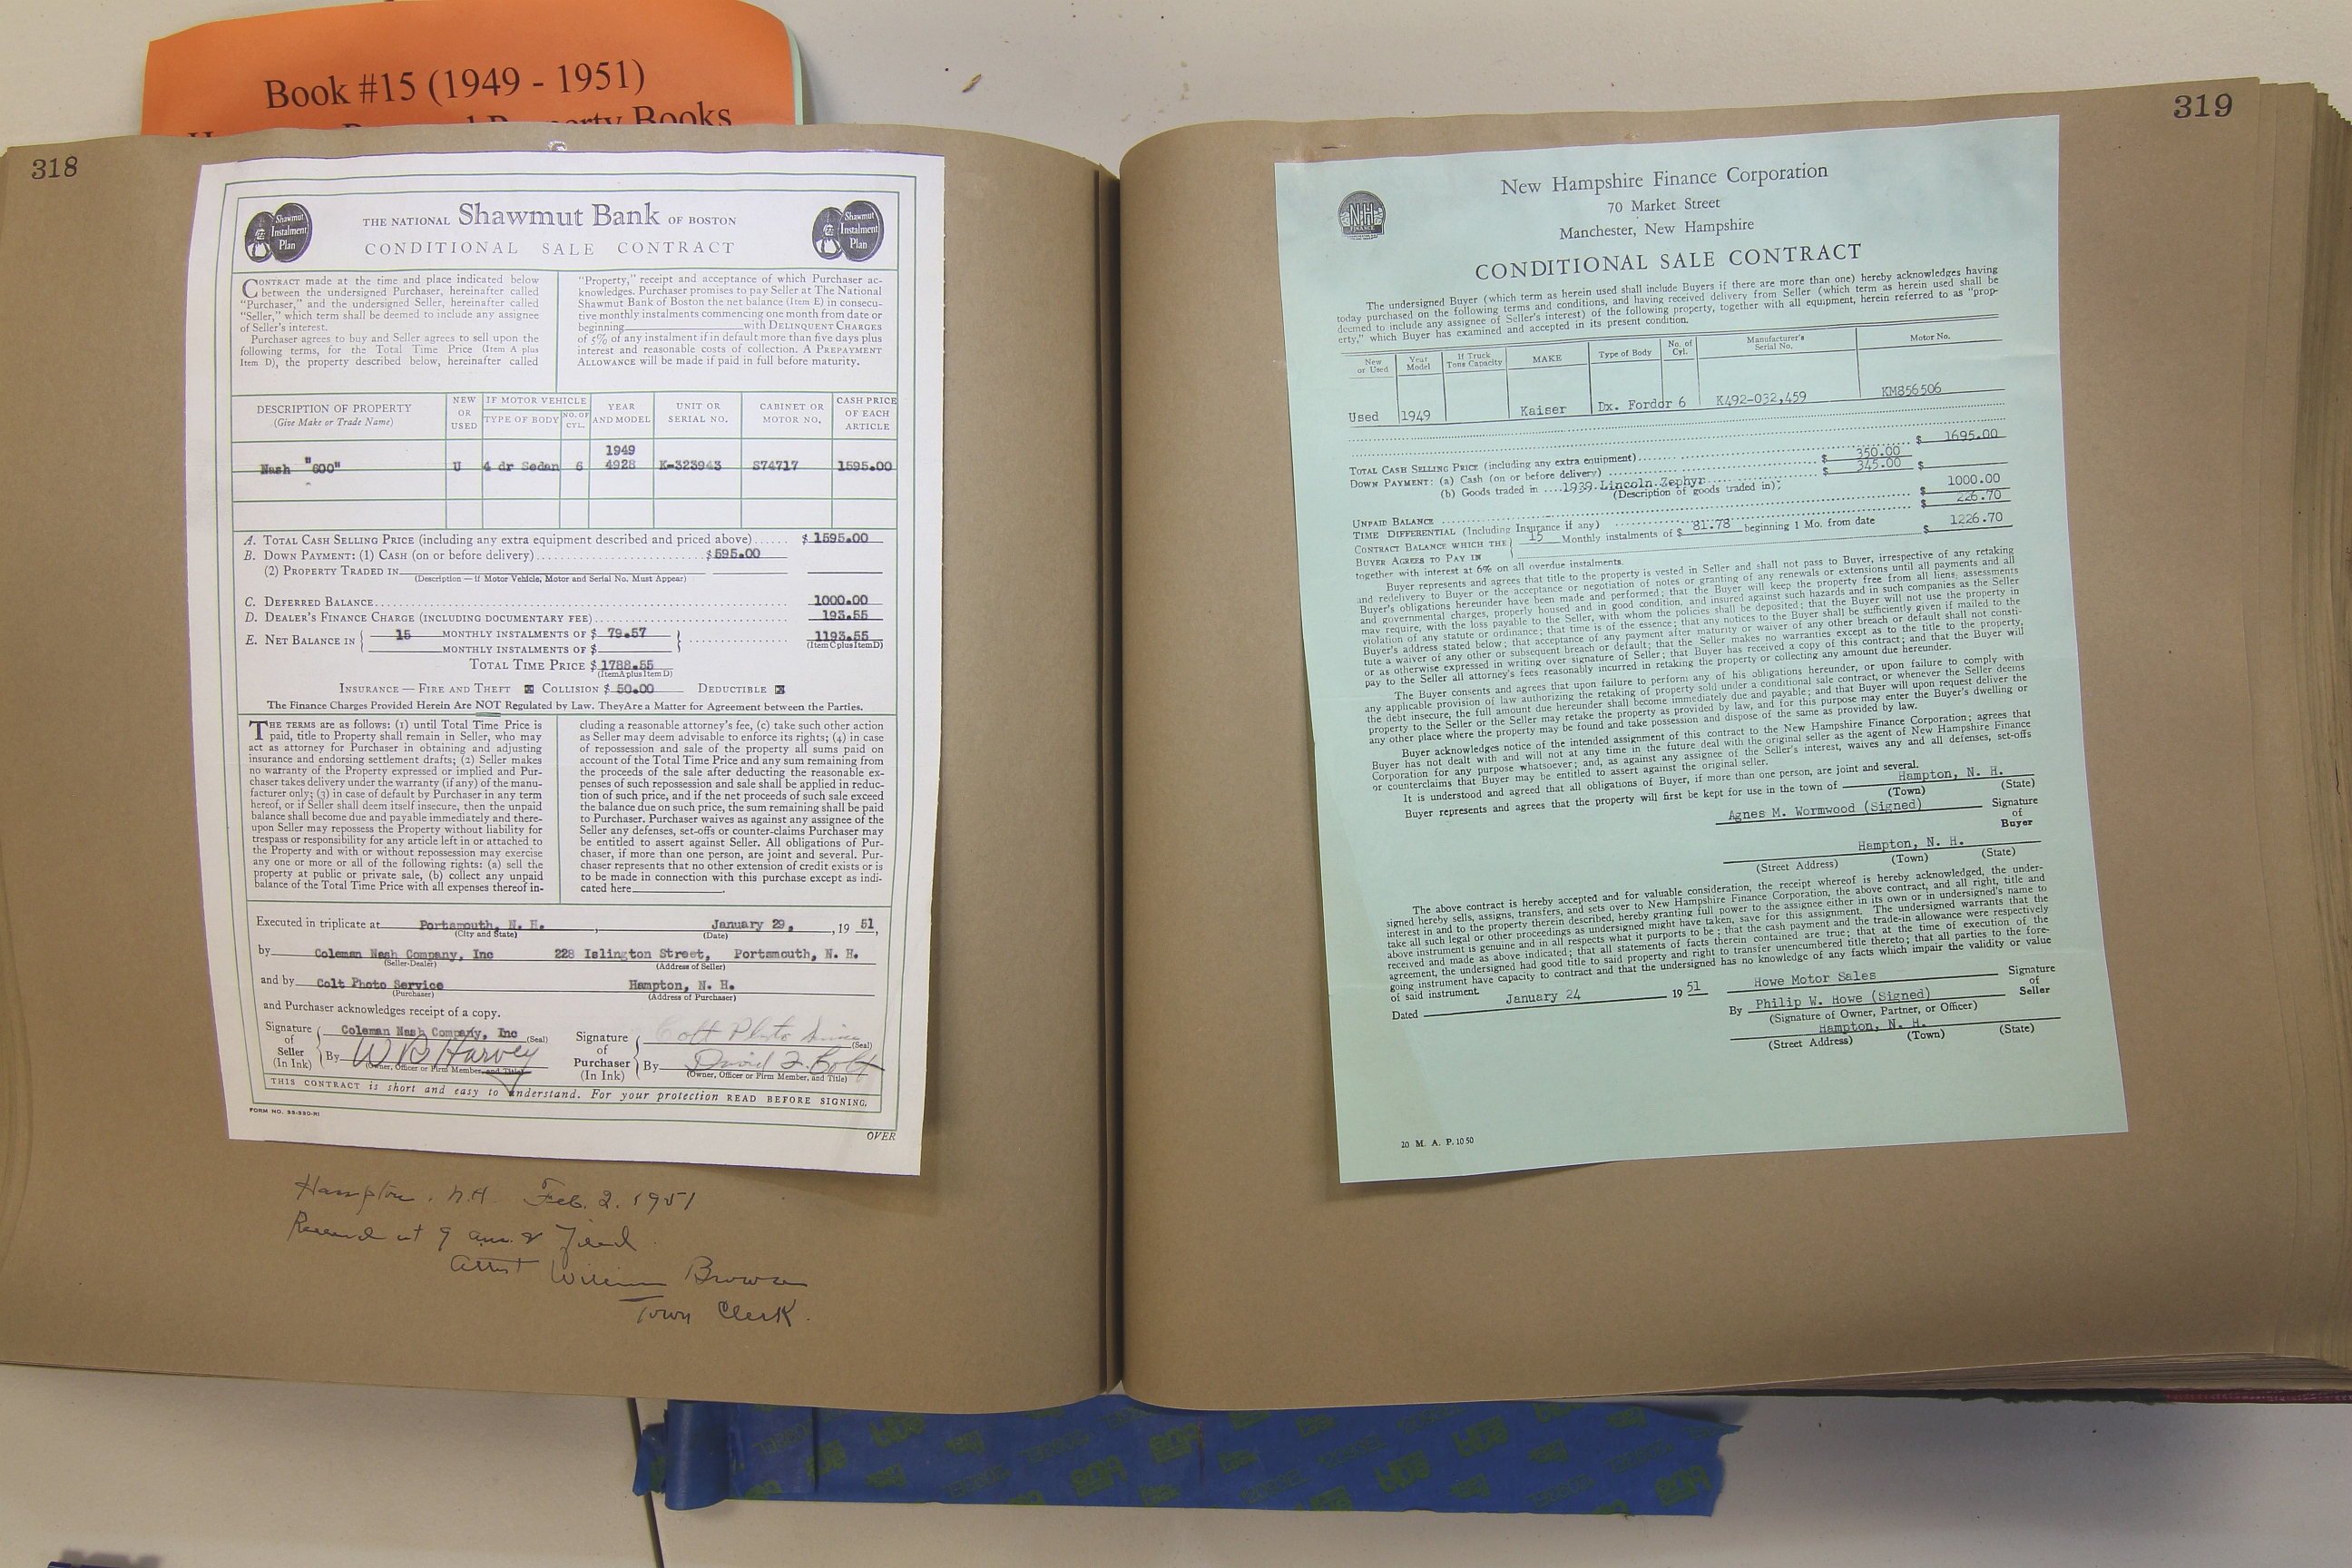 Book #15 (1949 - 1951)
Property Books
318
Shawmut
Instalment
Plan
THE NATIONAL Shawmut Bank OF BOSTON
CONDITIONAL SALE CONTRACT
Shawmut
Instalment
Plan
CONTRACT made at the time and place indicated below
between the undersigned Purchaser, hereinafter called
"Purchaser," and the undersigned Seller, hereinafter called
"Seller," which term shall be deemed to include any assignee
of Seller's interest.
Purchaser agrees to buy and Seller agrees to sell upon the
following terms, for the Total Time Price (Item A plus
Item D), the property described below, hereinafter called
"Property," receipt and acceptance of which Purchaser ac-
knowledges. Purchaser promises to pay Seller at The National
Shawmut Bank of Boston the net balance (Item E) in consecu-
tive monthly instalments commencing one month from date or
beginning with DELINQUENT CHARGES
of 5% of any instalment if in default more than five days plus
interest and reasonable costs of collection. A PREPAYMENT
ALLOWANCE will be made if paid in full before maturity.
DESCRIPTION OF PROPERTY
(Give Make or Trade Name)
NEW
OR
USED
IF MOTOR VEHICLE
TYPE OF BODY
NO. OF
CYL.
YEAR
AND MODEL
UNIT OR
SERIAL NO.
CABINET OR
MOTOR NO.
CASH PRICE
OF EACH
ARTICLE
Nash "600" U 4 dr Sedan 6 1949 4928 K-323943 S74717 1595.00
A. TOTAL CASH SELLING PRICE (including any extra equipment described and priced above)...... $ 1595.00
B. DOWN PAYMENT: (1) CASH (on or before delivery)........ $ 595.00
(2) PROPERTY TRADED IN
(Description — if Motor Vehicle, Motor and Serial No. Must Appear)
C. DEFERRED BALANCE........ 1000.00
D. DEALER'S FINANCE CHARGE (INCLUDING DOCUMENTARY FEE)........ 193.55
E. NET BALANCE IN { 15 MONTHLY INSTALMENTS OF $ 79.57 } ........ 1193.55
MONTHLY INSTALMENTS OF $ (Item C plus Item D)
TOTAL TIME PRICE $ 1788.55
(Item A plus Item D)
INSURANCE — FIRE AND THEFT ☒ COLLISION $ 50.00 DEDUCTIBLE ☒
The Finance Charges Provided Herein Are NOT Regulated by Law. They Are a Matter for Agreement between the Parties.
THE TERMS are as follows: (1) until Total Time Price is
paid, title to Property shall remain in Seller, who may
act as attorney for Purchaser in obtaining and adjusting
insurance and endorsing settlement drafts; (2) Seller makes
no warranty of the Property expressed or implied and Pur-
chaser takes delivery under the warranty (if any) of the manu-
facturer only; (3) in case of default by Purchaser in any term
hereof, or if Seller shall deem itself insecure, then the unpaid
balance shall become due and payable immediately and there-
upon Seller may repossess the Property without liability for
trespass or responsibility for any article left in or attached to
the Property and with or without repossession may exercise
any one or more or all of the following rights: (a) sell the
property at public or private sale, (b) collect any unpaid
balance of the Total Time Price with all expenses thereof in-
cluding a reasonable attorney's fee, (c) take such other action
as Seller may deem advisable to enforce its rights; (4) in case
of repossession and sale of the property all sums paid on
account of the Total Time Price and any sum remaining from
the proceeds of the sale after deducting the reasonable ex-
penses of such repossession and sale shall be applied in reduc-
tion of such price, and if the net proceeds of such sale exceed
the balance due on such price, the sum remaining shall be paid
to Purchaser. Purchaser waives as against any assignee of the
Seller any defenses, set-offs or counter-claims Purchaser may
be entitled to assert against Seller. All obligations of Pur-
chaser, if more than one person, are joint and several. Pur-
chaser represents that no other extension of credit exists or is
to be made in connection with this purchase except as indi-
cated here
Executed in triplicate at Portsmouth, N. H., January 29, , 19 51,
(City and State) (Date)
by Coleman Nash Company, Inc 228 Islington Street, Portsmouth, N. H.
(Seller-Dealer) (Address of Seller)
and by Colt Photo Service Hampton, N. H.
(Purchaser) (Address of Purchaser)
and Purchaser acknowledges receipt of a copy.
Signature
of
Seller
(In Ink)
Coleman Nash Company, Inc (Seal)
By W B Harvey
(Owner, Officer or Firm Member, and Title)
Signature
of
Purchaser
(In Ink)
Colt Photo (Seal)
By David
(Owner, Officer or Firm Member, and Title)
THIS CONTRACT is short and easy to understand. For your protection READ BEFORE SIGNING.
OVER
Hampton, N.H. Feb. 2. 1951
Received at 9 a.m. & Filed
Attest William Brown
Town Clerk.
319
NH
FINANCE
New Hampshire Finance Corporation
70 Market Street
Manchester, New Hampshire
CONDITIONAL SALE CONTRACT
The undersigned Buyer (which term as herein used shall include Buyers if there are more than one) hereby acknowledges having
today purchased on the following terms and conditions, and having received delivery from Seller (which term as herein used shall be
deemed to include any assignee of Seller's interest) of the following property, together with all equipment, herein referred to as "prop-
erty," which Buyer has examined and accepted in its present condition.
New
or Used
Year
Model
If Truck
Tons Capacity
MAKE
Type of Body
No. of
Cyl.
Manufacturer's
Serial No.
Motor No.
Used 1949 Kaiser Dx. Fordor 6 K492-032,459 KM856506
TOTAL CASH SELLING PRICE (including any extra equipment)........ $ 1695.00
DOWN PAYMENT: (a) Cash (on or before delivery) ........ $ 350.00
(b) Goods traded in .... 1939 Lincoln Zephyr ........ $ 345.00 $
(Description of goods traded in);
UNPAID BALANCE ........ $ 1000.00
TIME DIFFERENTIAL (Including Insurance if any) ........ $ 226.70
CONTRACT BALANCE WHICH THE
BUYER AGREES TO PAY IN
15 Monthly instalments of $ 81.78 beginning 1 Mo. from date $ 1226.70
together with interest at 6% on all overdue instalments.
Buyer represents and agrees that title to the property is vested in Seller and shall not pass to Buyer, irrespective of any retaking
and redelivery to Buyer or the acceptance or negotiation of notes or granting of any renewals or extensions until all payments and all
Buyer's obligations hereunder have been made and performed; that the Buyer will keep the property free from all liens, assessments
and governmental charges, properly housed and in good condition, and insured against such hazards and in such companies as the Seller
may require, with the loss payable to the Seller, with whom the policies shall be deposited; that the Buyer will not use the property in
violation of any statute or ordinance; that time is of the essence; that any notices to the Buyer shall be sufficiently given if mailed to the
Buyer's address stated below; that acceptance of any payment after maturity or waiver of any other breach or default shall not consti-
tute a waiver of any other or subsequent breach or default; that the Seller makes no warranties except as to the title to the property,
or as otherwise expressed in writing over signature of Seller; that Buyer has received a copy of this contract; and that the Buyer will
pay to the Seller all attorney's fees reasonably incurred in retaking the property or collecting any amount due hereunder.
The Buyer consents and agrees that upon failure to perform any of his obligations hereunder, or upon failure to comply with
any applicable provision of law authorizing the retaking of property sold under a conditional sale contract, or whenever the Seller deems
the debt insecure, the full amount due hereunder shall become immediately due and payable; and that Buyer will upon request deliver the
property to the Seller or the Seller may retake the property as provided by law, and for this purpose may enter the Buyer's dwelling or
any other place where the property may be found and take possession and dispose of the same as provided by law.
Buyer acknowledges notice of the intended assignment of this contract to the New Hampshire Finance Corporation; agrees that
Buyer has not dealt with and will not at any time in the future deal with the original seller as the agent of New Hampshire Finance
Corporation for any purpose whatsoever; and, as against any assignee of the Seller's interest, waives any and all defenses, set-offs
or counterclaims that Buyer may be entitled to assert against the original seller.
It is understood and agreed that all obligations of Buyer, if more than one person, are joint and several.
Buyer represents and agrees that the property will first be kept for use in the town of Hampton, N. H.
(Town) (State)
Agnes M. Wormwood (Signed)
Signature
of
Buyer
Hampton, N. H.
(Street Address) (Town) (State)
The above contract is hereby accepted and for valuable consideration, the receipt whereof is hereby acknowledged, the under-
signed hereby sells, assigns, transfers, and sets over to New Hampshire Finance Corporation, the above contract, and all right, title and
interest in and to the property therein described, hereby granting full power to the assignee either in its own or in undersigned's name to
take all such legal or other proceedings as undersigned might have taken, save for this assignment. The undersigned warrants that the
above instrument is genuine and in all respects what it purports to be; that the cash payment and the trade-in allowance were respectively
received and made as above indicated; that all statements of facts therein contained are true; that at the time of execution of the
agreement, the undersigned had good title to said property and right to transfer unencumbered title thereto; that all parties to the fore-
going instrument have capacity to contract and that the undersigned has no knowledge of any facts which impair the validity or value
of said instrument.
Dated January 24 19 51
Howe Motor Sales
By Philip W. Howe (Signed)
(Signature of Owner, Partner, or Officer)
Signature
of
Seller
Hampton, N. H.
(Street Address) (Town) (State)
20 M. A. P. 10 50